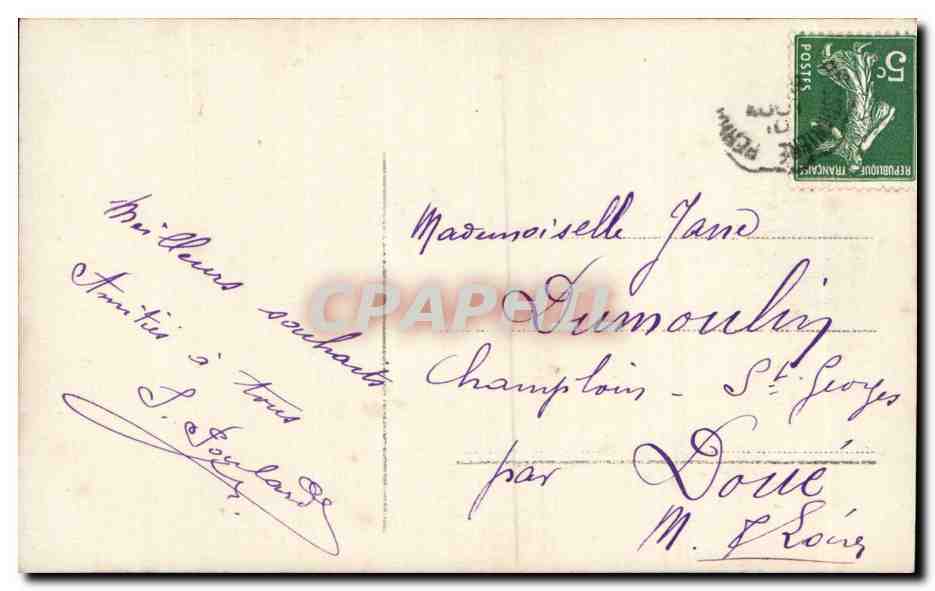 Meilleurs souhaits
Amitiés à tous
Mademoiselle Jane
Dumoulin
Champloin - St Georges
par Doué
M. & Loire
5c
POSTES
REPUBLIQUE FRANÇAISE
CPAPHIL